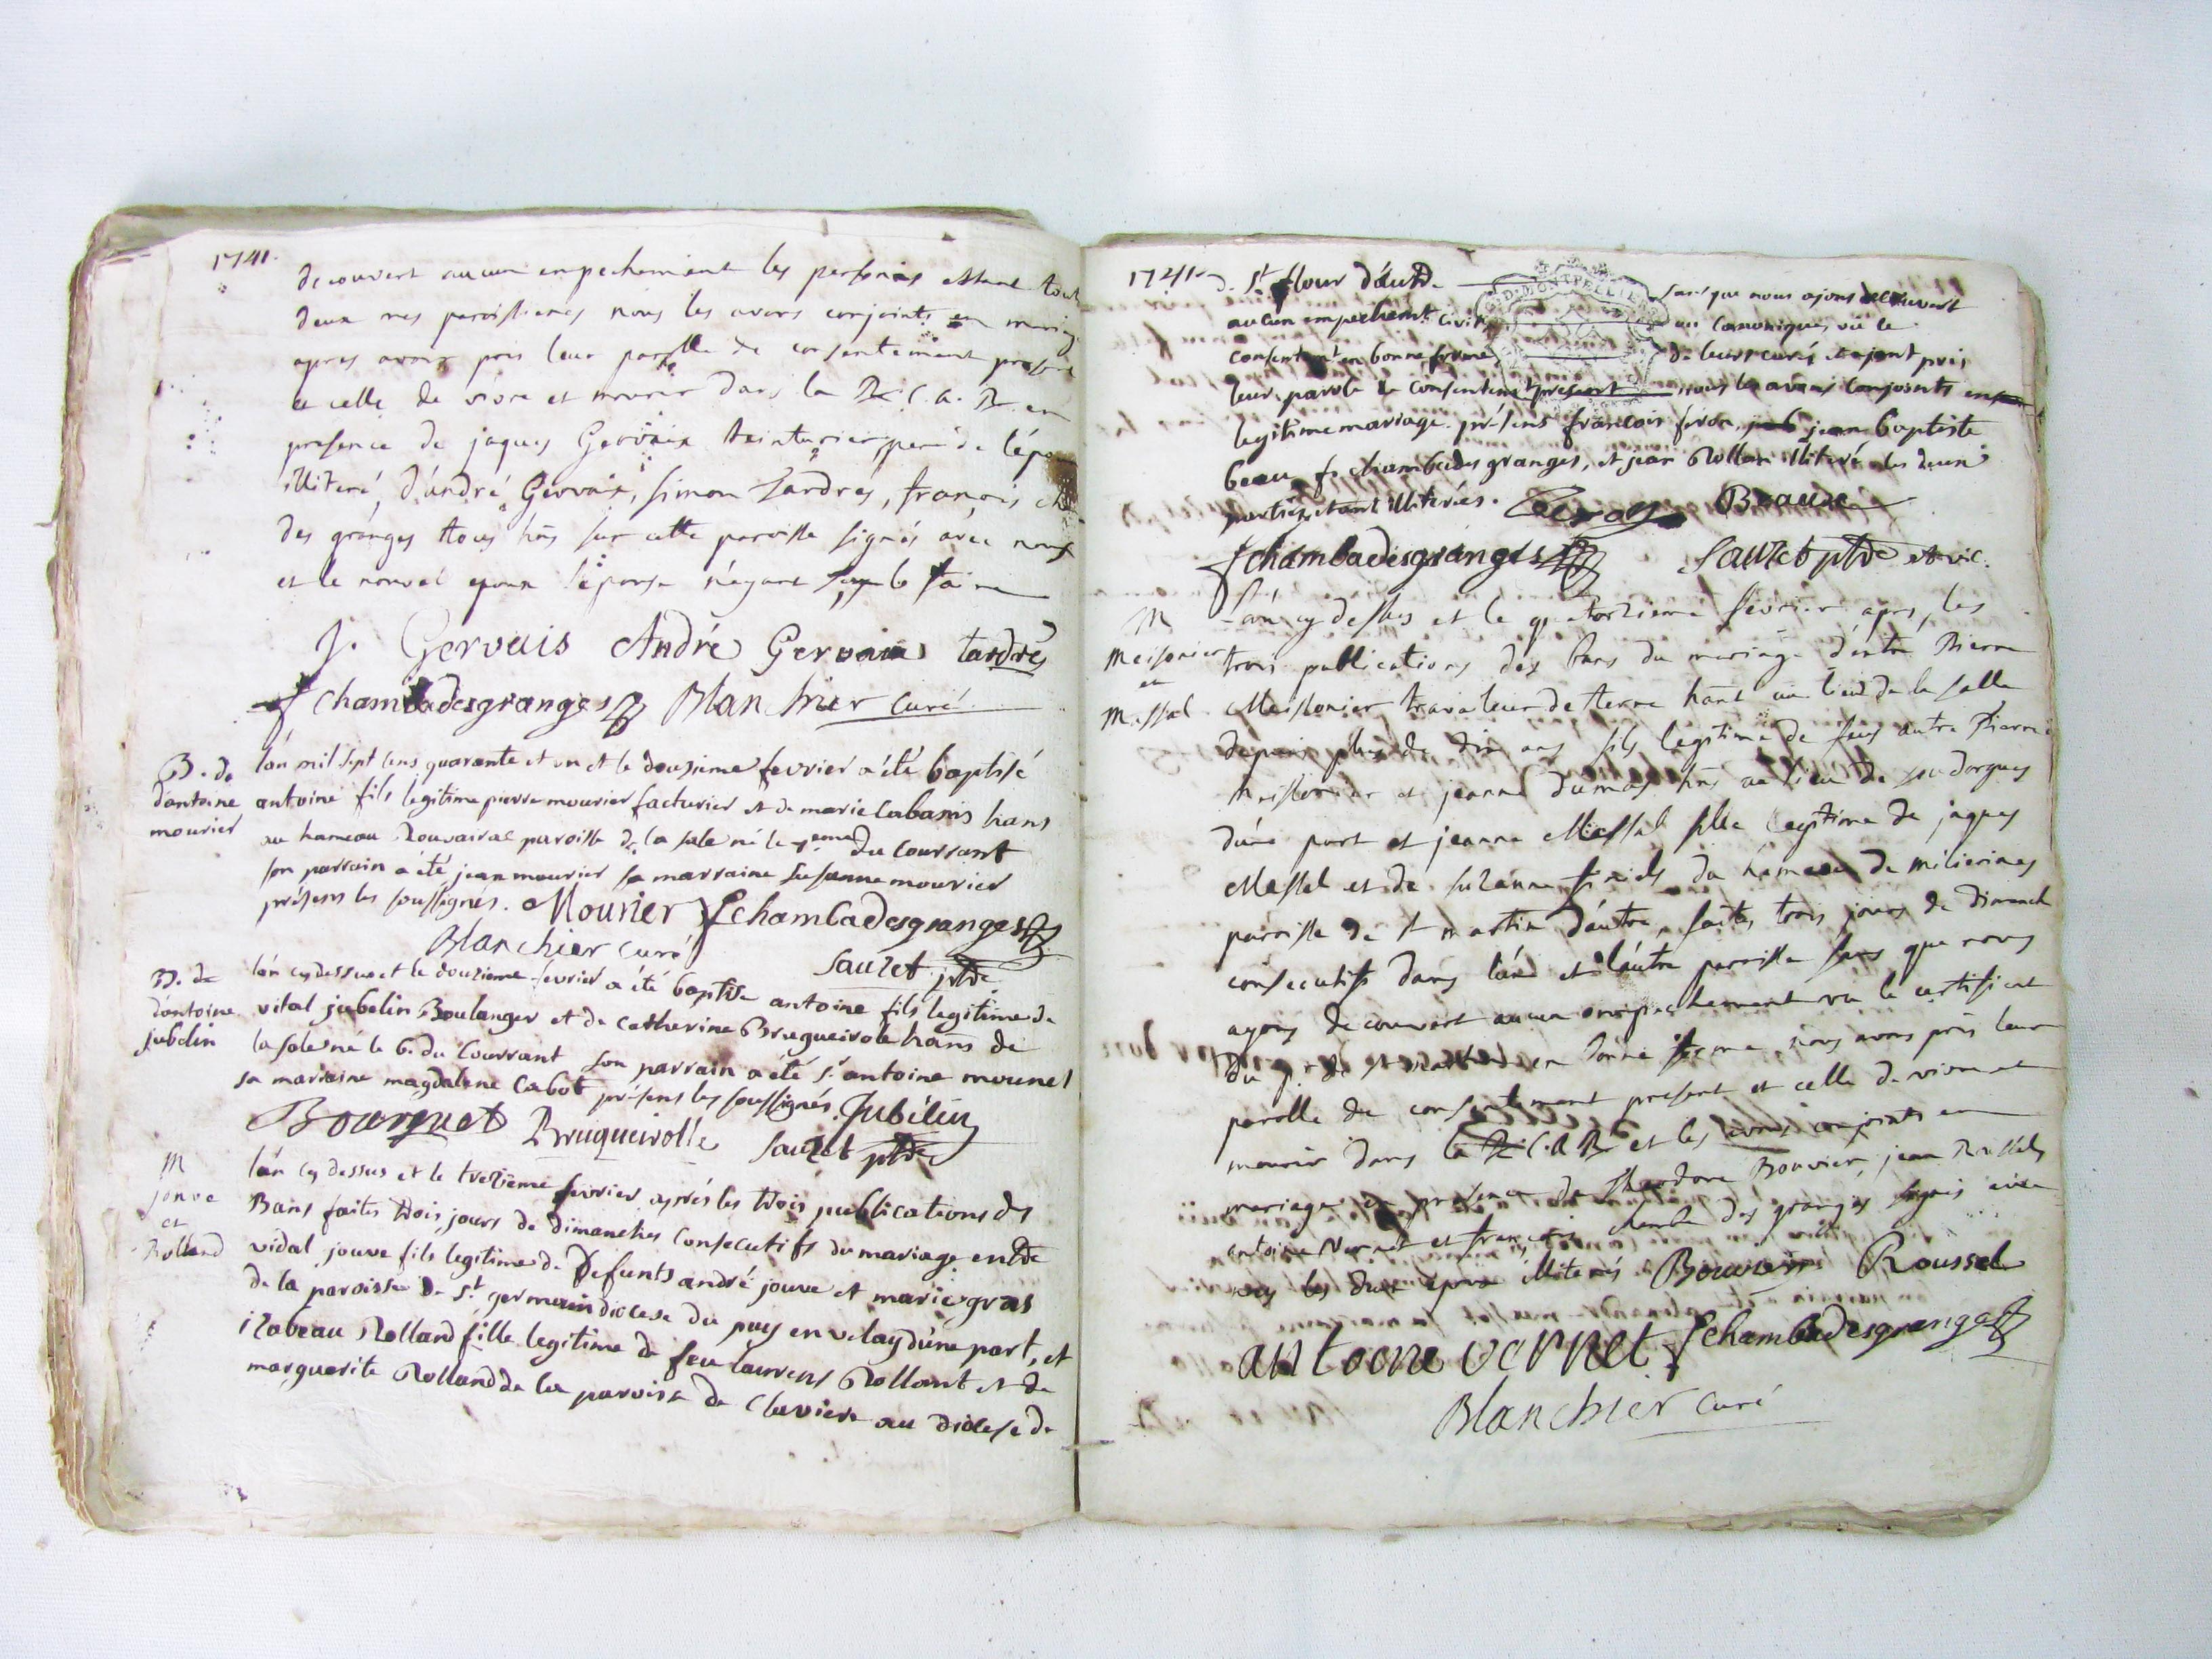 1741.
decouvert aucun empechement les parties estant tout
deux mes paroissienes nous les avons conjoints en mariage
apres avoir pris leur parolle de consentement present
et celle de vivre et mourir dans la R. C. A. R. en
presence de jaques Gervaix teinturier pere de l'épou
illiteré, d'andré Gervaix, simon Tardres, françois cha
des granges tous hans sur cette paroisse signés avec nous
et le nouvel epoux l'épouse n'ayant sçu le faire
J. Gervais André Gervais tardrés
f chambadesgranges Blanchier curé
B. de
d'antoine
mourier
l'an mil sept cens quarante et un et le douzieme fevrier a été baptisé
antoine fils legitime pierre mourier facturier et de marie Cabanis hans
au hameau Rouvairac paroisse de la sale né le 7eme du courrant
son parrain a été jean mourier sa marraine susanne mourier
présens les soussignés. Mourier f chambadesgranges
Blanchier curé Sauzet ptre
B. de
d'antoine
jubelin
l'an cy dessus et le douzieme fevrier a été baptise antoine fils legitime de
vital jubelin Boulanger et de Catherine Brugueirole hans de
la sale né le 6. du Courrant son parrain a été sr antoine mounel
sa marraine magdalene Cabot présens les soussignés. Jubélin
Bourguet Brugueirolle Sauzet ptre
M
jouve
et
Rolland
l'an cy dessus et le trezieme fevrier aprés les trois publications des
Bans faites trois jours de dimanches Consecutifs du mariage entre
vidal jouve fils legitime de Defunts andré jouve et marie gras
de la paroisse de St germain diocese du puy en velay d'une part, et
izabeau Rolland fille legitime de feu laurens Rollant et de
marguerite Rolland de la paroisse de Claviere au diocese de
1741
St flour d'autre sans que nous ajons decouvert
aucun empechemt civil ou canonique, vu le
consentemt en bonne forme de leurs curés et ajant pris
leur parole de consentemt present nous les avons conjoints en
legitime mariage. présens francois jean baptiste
beau, f. chambadesgranges, et jean Rollan illiteré les deux
parties étant illiterées. Beaux
f chambadesgranges Sauzet ptre et vic.
M
Meisonier
et
Massal
L'an cy dessus et le quatorzieme fevrier apres les
trois publications des bans du mariage d'entre Pierre
Meissonier travailleur de terre hant au lieu de la salle
depuis plus de dix ans fils legitime de feu autre Pierre
Meissonier et jeanne dumas hans au lieu de soudorgues
d'une part et jeanne Massal fille legitime de jaques
Massal et de suzanne finiels du hameau de milierines
paroisse de St martin d'autre, faites trois jours de dimanch
consecutifs dans l'une et l'autre paroisse sans que nous
ayons decouvert aucun empechement vu le certificat
du Pr de St martin en bonne forme nous avons pris leur
parolle de consentement present et celle de vivre et
mourir dans la R. C. A. R et les avons conjoints en
mariage en presence de Theodore Bouvier, jean Roussel,
antoine Vernet et françois chamba des granges signés avec
nous les deux epoux illiterés Bouvier Roussel
antoine vernet f chambadesgranges
Blanchier curé